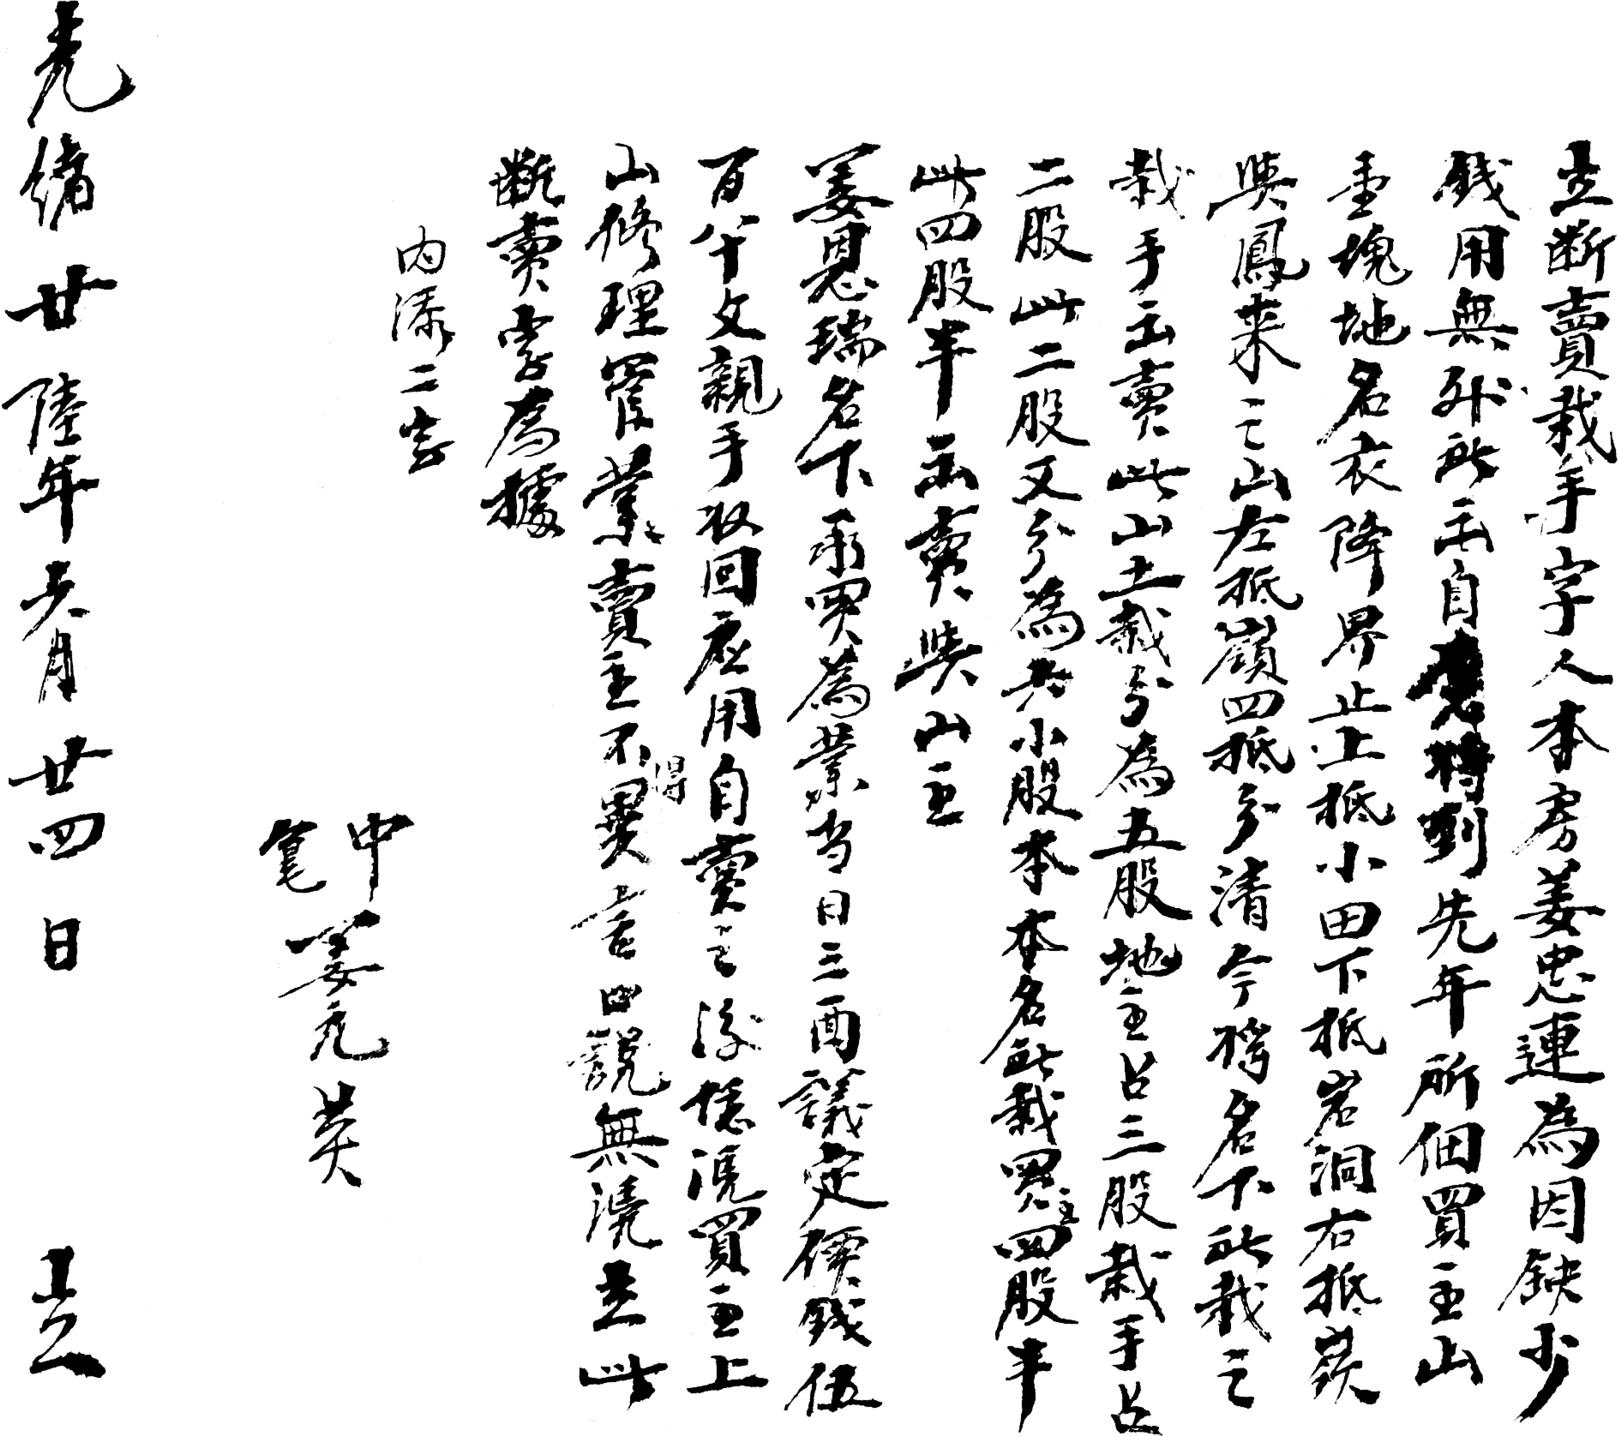 立斷賣栽手字人本房姜忠連為因缺少
錢用無所出自愿將到先年所佃買主山
壹塊地名衣降界止上抵小田下抵岩洞右抵嶺
與鳳來之山左抵嶺四抵分清今將名下所栽之
栽手出賣此山土栽分為五股地主占三股栽手占
二股此二股又分為六小股本本名所栽買主四股半
此四股半出賣與山主
姜恩瑞名下承買為業當日三面議定價錢伍
百八十文親手收回應用自賣之後憑買主上
山修理管業賣主不得異言口說無憑立此
斷賣字為據
內添二字
中
筆 姜元英
光緒廿陸年六月廿四日 立